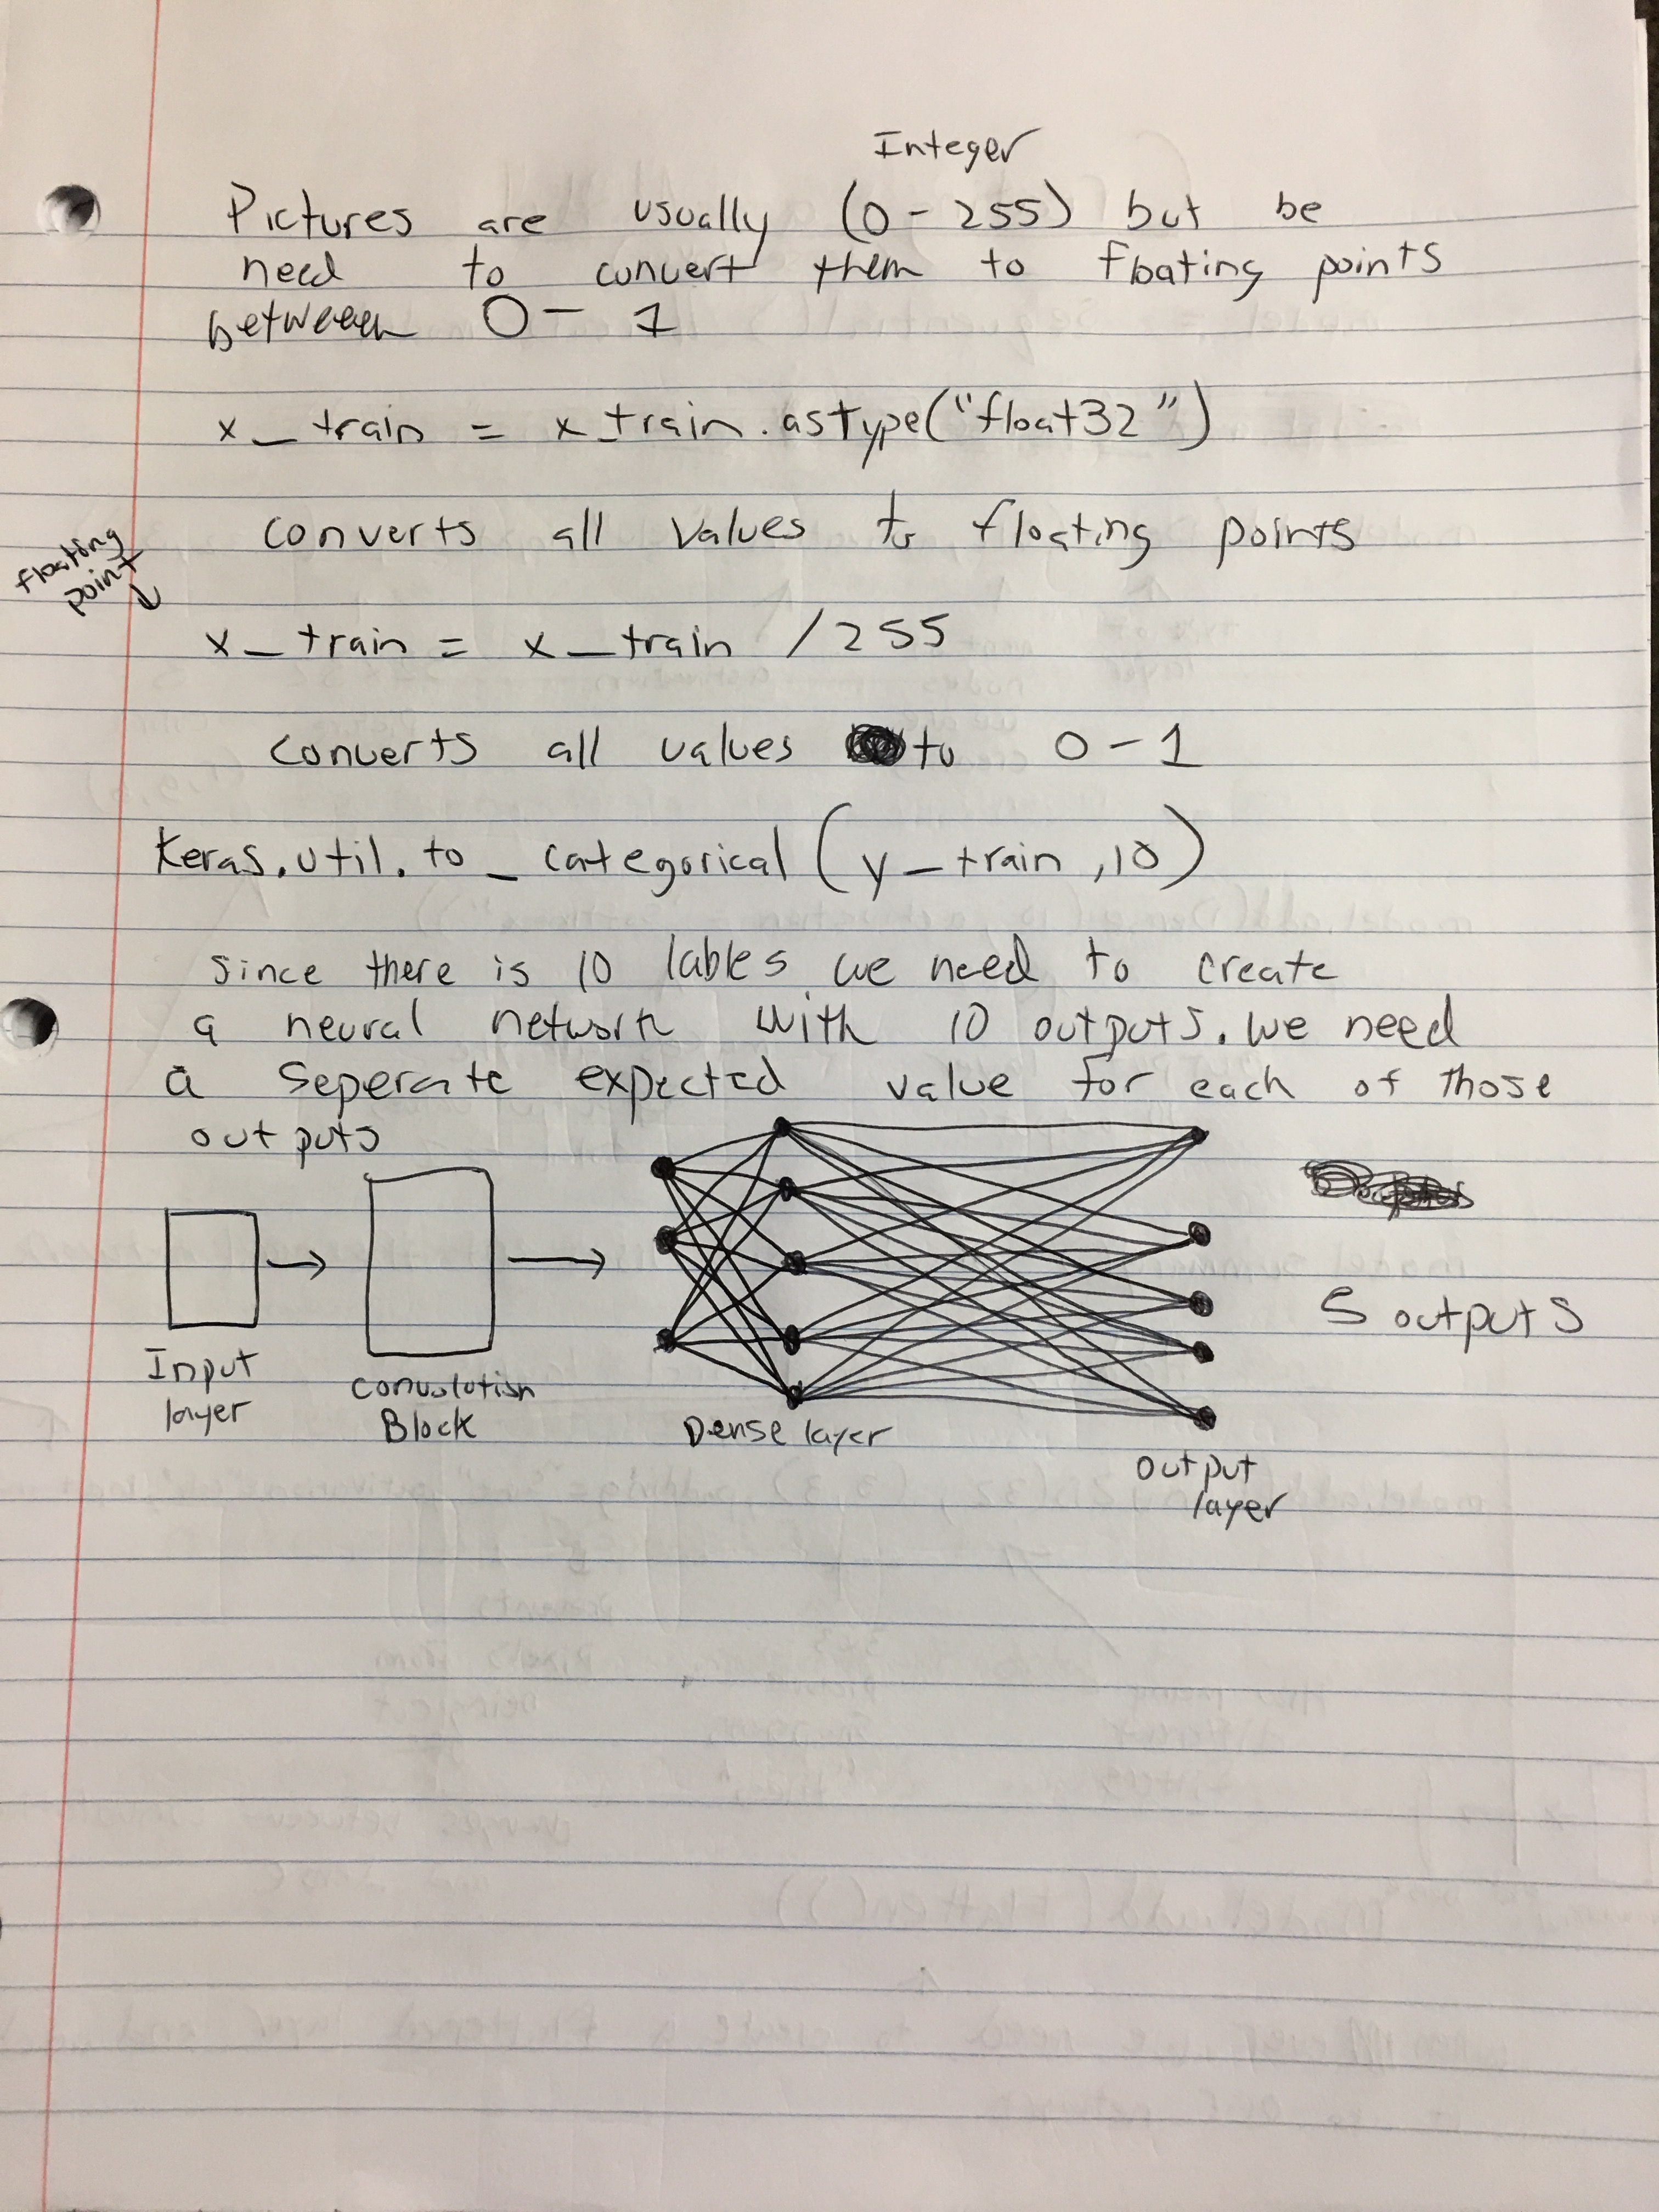 Integer
Pictures are usually (0-255) but be
need to convert them to floating points
betweeen 0-1
x_train = x_train.astype("float32")
converts all values to floating points
floating
point
x_train = x_train /255
converts all values to 0-1
Keras.util.to_categorical(y_train,10)
since there is 10 lables we need to create
a neural network with 10 outputs. we need
a seperate expected value for each of those
outputs
5 outputs
Input
layer
convolution
Block
Dense layer
output
layer